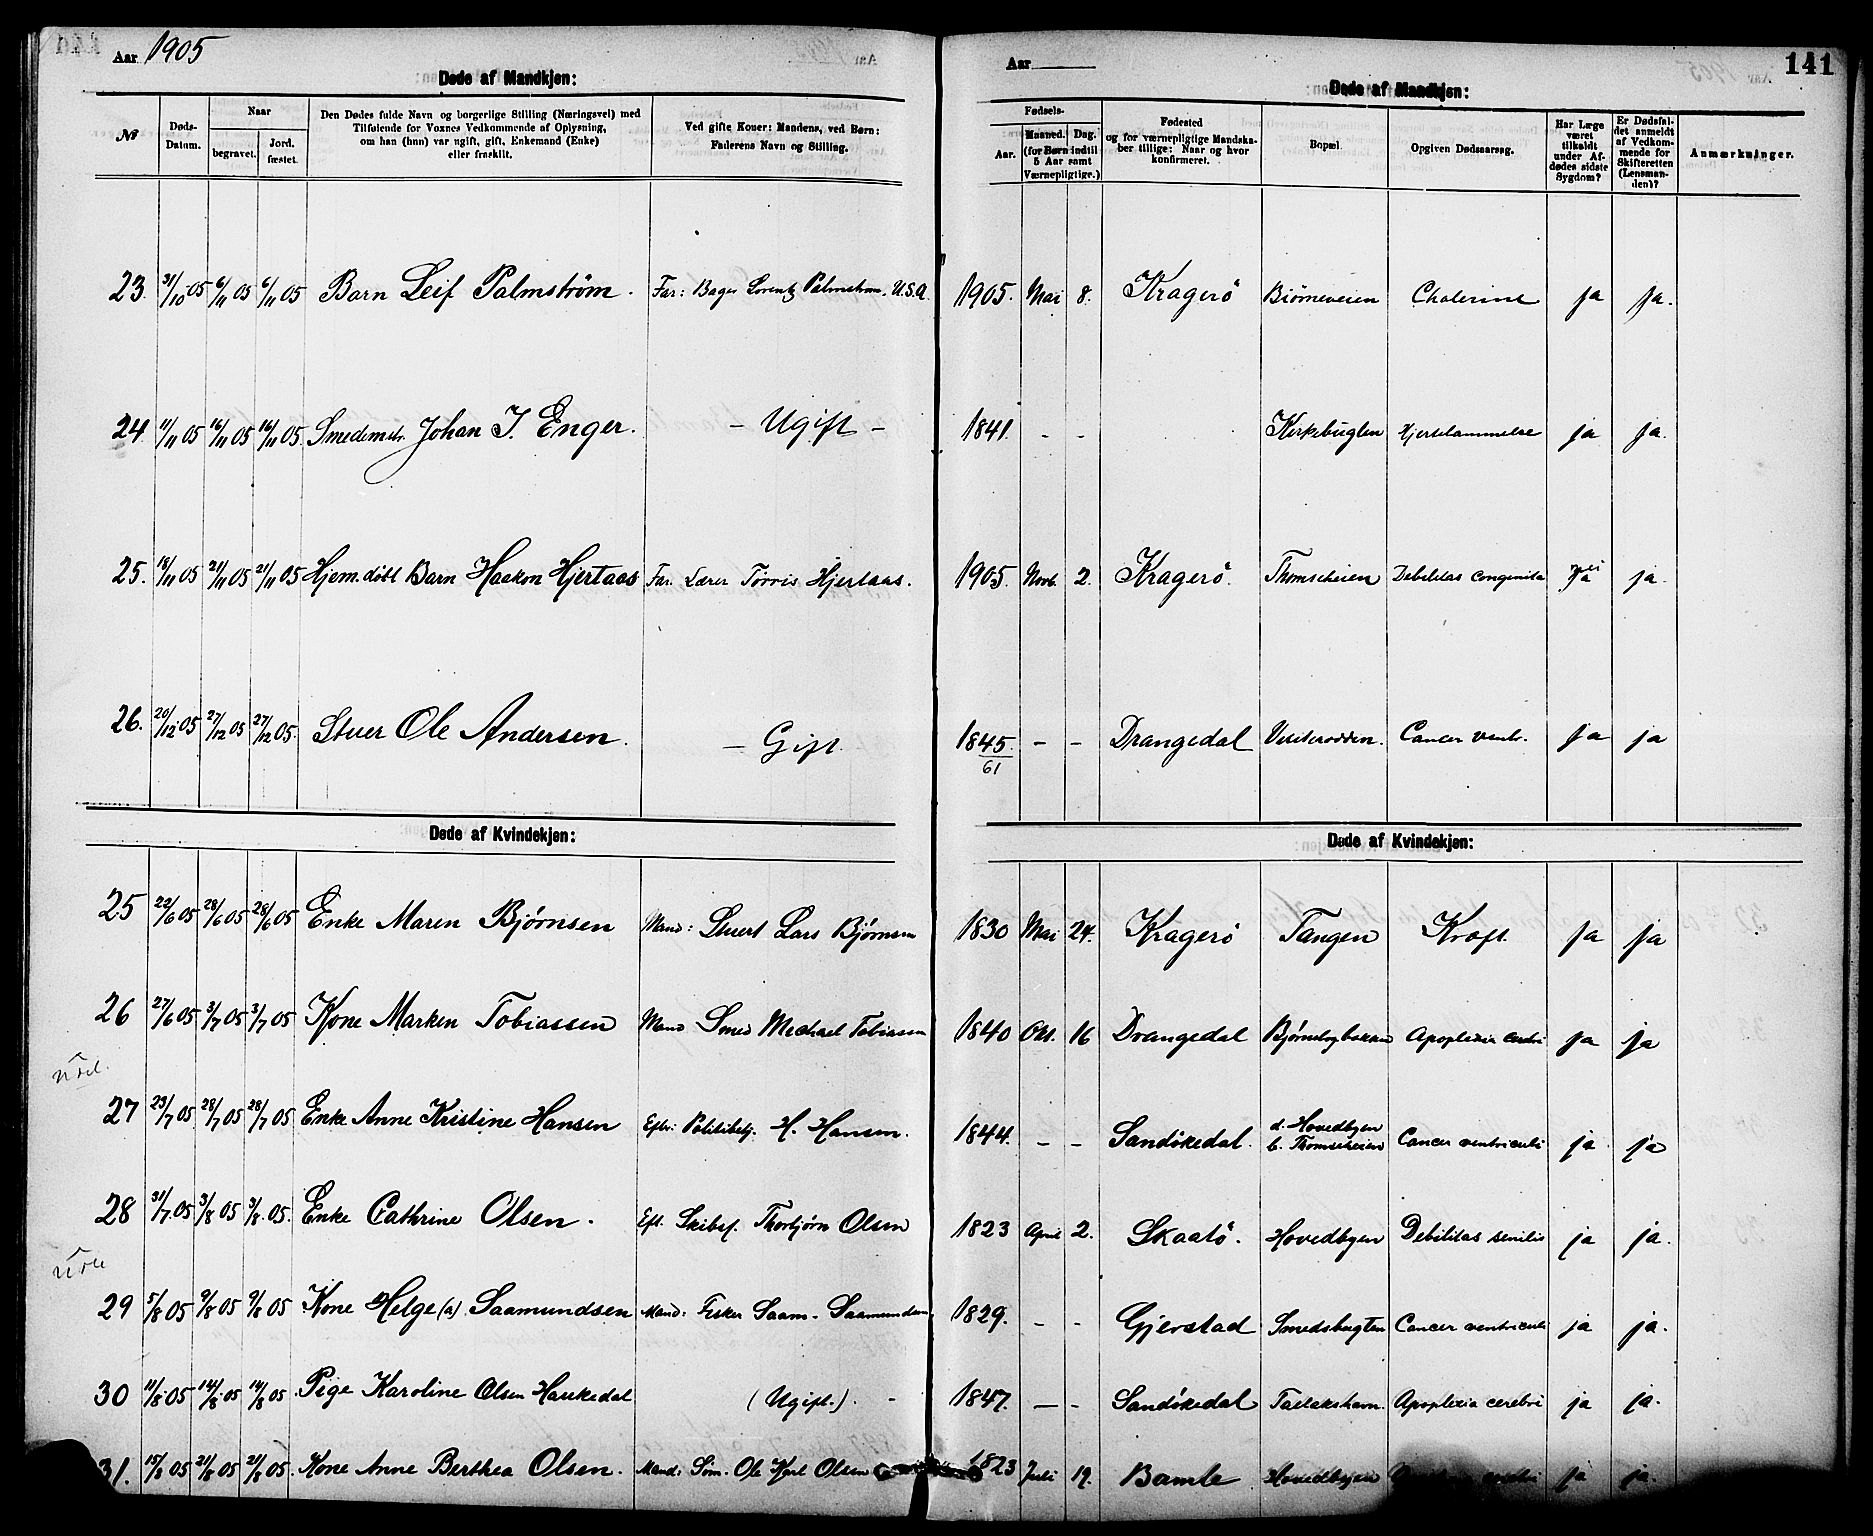 Aar 1905
Døde af Mandkjøn:
№ Døds-Datum. Naar begravet. Jord. fæstet. Den Dødes fulde Navn og borgerlige Stilling (Næringsvei) med Tilføiende for Voxnes Vedkommende af Oplysning, om han (hun) var ugift, gift, Enkemand (Enke) eller fraskilt. Ved gifte Koner: Mandens, ved Børn: Faderens Navn og Stilling.
Aar 141
Døde af Mandkjøn:
Fødsels- Aar. Maaned. Dag. (for Børn indtil 5 Aar samt Værnepligtige.) Fødested og for værnepligtige Mandskaber tillige: Naar og hvor konfirmeret. Bopæl. Opgiven Dødsaarsag. Har Læge været tilkaldt under Afdødes sidste Sygdom? Er Dødsfaldet anmeldt af Vedkommende for Skifteretten (Lensmanden)? Anmærkninger.
23. 31/10 05 6/11 05 6/11 05 Barn Leif Palmstrøm. Far: Bager Lorentz Palmstrøm. U.S.A. 1905. Mai 8. Kragerö Biörneveien Cholerine ja ja.
24. 11/11 05 16/11 05 16/11 05. Smedemstr. Johan J. Enger. – Ugift – 1841. – – Kirkebugten Hjertelammelse ja ja.
25. 18/11 05 21/11 05 21/11 05 Hjem.døbt Barn Haakon Hjertaas Far. Lærer Torvis Hjertaas. 1905. Novb. 2. Kragerö. Thomseheien Debilitas congenita ja ja.
26. 20/12 05 27/12 05 27/12 05. Stuer Ole Andersen. – Gift. 1845. 61 – – Drangedal Cancer ventr. ja ja
Døde af Kvindekjøn:
Døde af Kvindekjøn:
25 22/6 05 28/6 05 28/6 05 Enke Maren Bjørnsen Mand: Stuert Lars Bjørnsen 1830 Mai 24. Kragerö Tangen Kræft ja ja
26 27/6 05 3/7 05 3/7 05 Kone Marken Tobiassen Mand Smed Michael Tobiassen 1840 Okt. 16 Drangedal Bjørnsbogbakken Apoplexia cerebri ja ja
27 23/7 05 28/7 05 28/7 05 Enke Anne Kristine Hansen Eftr: Politibetj. H. Hansen. 1844. – – Sandökedal. d. Hovedbyen b. Thomseheien Cancer ventriculi ja ja
28 31/7 05 3/8 05 3/8 05. Enke Cathrine Olsen. Eft. Skibsf. Thorbjörn Olsen 1823 April 2. Skaatö. Hovedbyen Debilitas senilis ja ja.
29 5/8 05 9/8 05 9/8 05 Kone Helge (a) Saamundsen Mand: Fisker Saam. Saamundsen, 1829. – – Gjerstad Smedsbugten Cancer ventriculi ja ja.
30 11/8 05 14/8 05 14/8 05. Pige Karoline Olsen Haukedal (Ugift.). – 1847. – – Sandökedal Tallakshavn. Apoplexia cerebri ja ja.
31. 15/8 05 21/8 05 21/8 05 Kone Anne Berthea Olsen. Mand: Söm. Ole Olsen 1823 Juli 19. Bamle Hovedbyen cerebri ja ja.